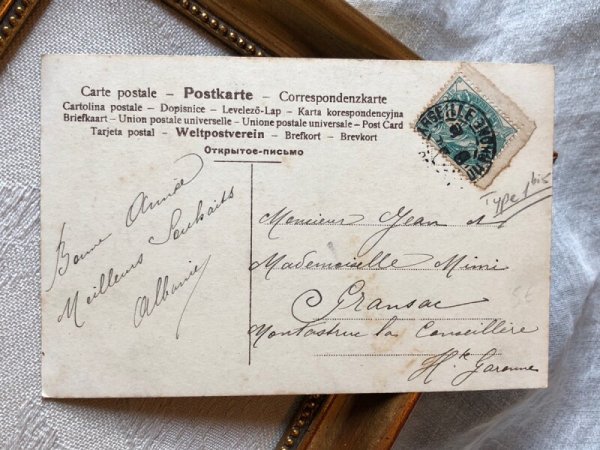 Carte postale – Postkarte – Correspondenzkarte
Cartolina postale – Dopisnice – Levelező-Lap – Karta korespondencyjna
Briefkaart – Union postale universelle – Unione postale universale – Post Card
Tarjeta postal – Weltpostverein – Brefkort – Brevkort
Открытое-письмо
Bonne Année
Meilleurs Souhaits
Albanie
MARSEILLE
Type 1 bis
Monsieur Jean et
Mademoiselle Mimi
Gransac
Montastruc la Conseillère
Hte Garonne